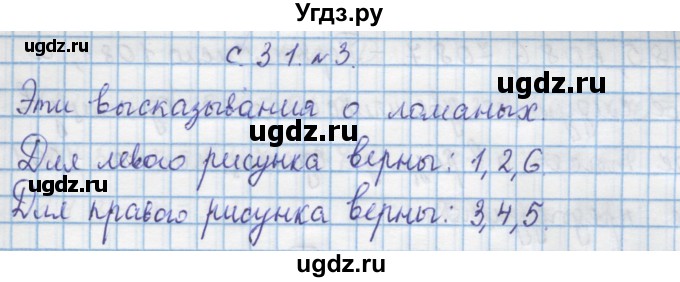 Угдз.ру
с. 31. №3.
Эти высказывания о ломаных.
Для левого рисунка верны: 1, 2, 6
Для правого рисунка верны: 3, 4, 5.
ugdz.ru
ugdz.ru
ugdz.ru
ugdz.ru
ugdz.ru
ugdz.ru
ugdz.ru
ugdz.ru